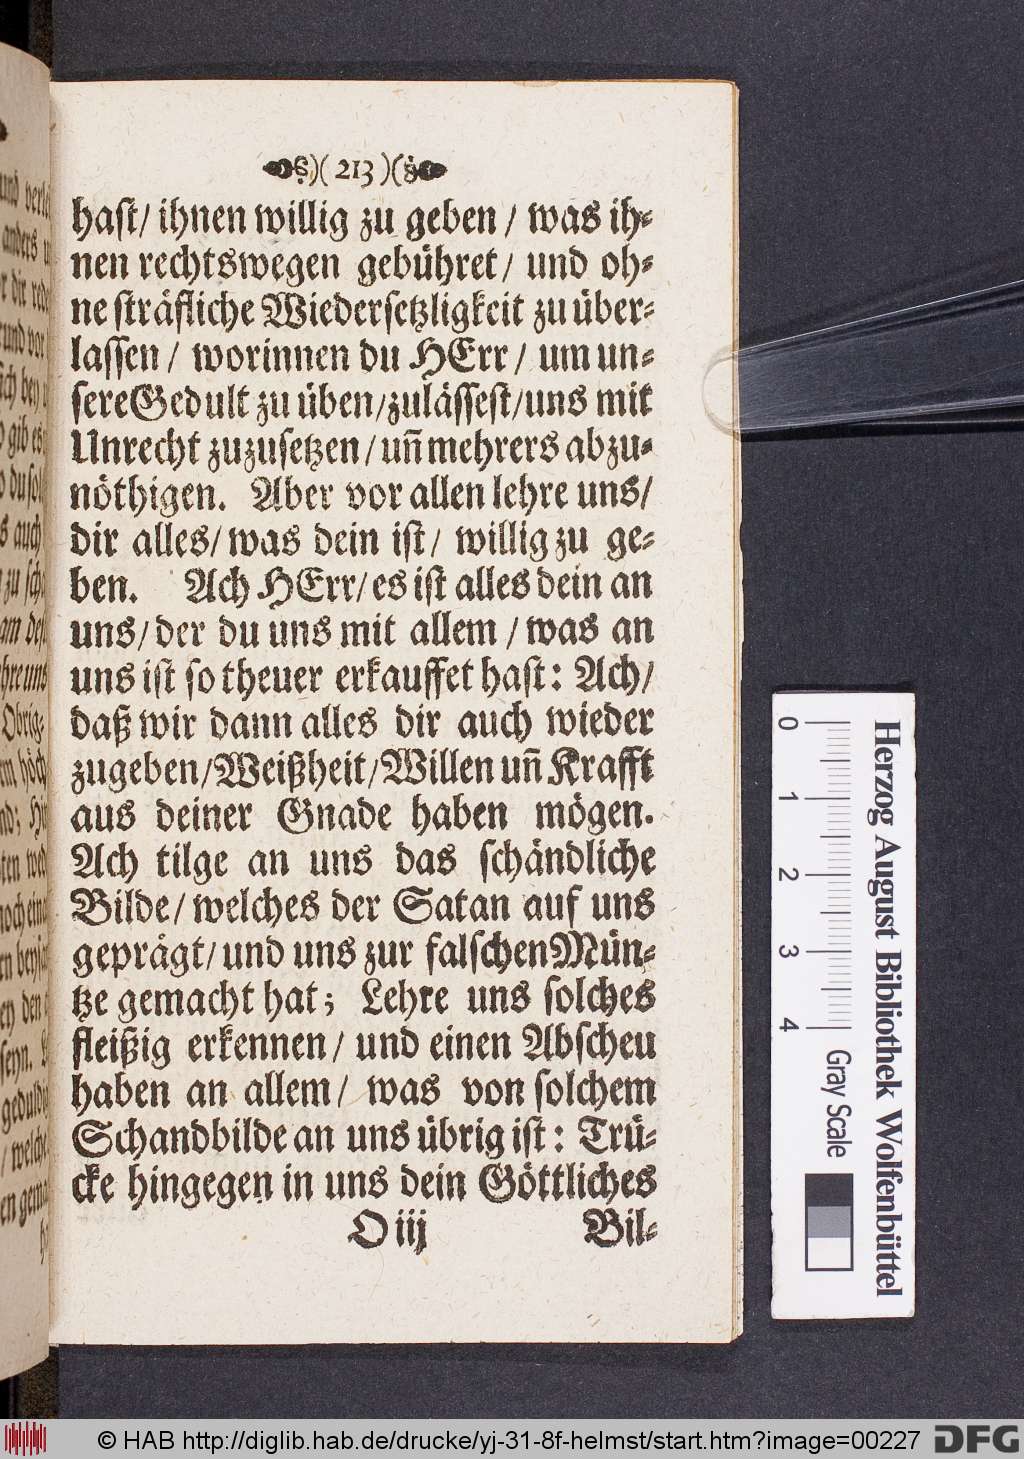 )( 213 )(
haſt/ ihnen willig zu geben / was ih⸗
nen rechtswegen gebühret/ und oh⸗
ne ſträfliche Wiederſetzligkeit zu über⸗
laſſen / worinnen du HErr/ um un⸗
ſere Gedult zu üben/zuläſſeſt/uns mit
Unrecht zuzuſetzen/un̄ mehrers abzu⸗
nöthigen. Aber vor allen lehre uns/
dir alles/ was dein iſt/ willig zu ge⸗
ben. Ach HErr/ es iſt alles dein an
uns/ der du uns mit allem / was an
uns iſt ſo theuer erkauffet haſt: Ach/
daß wir dann alles dir auch wieder
zugeben/Weißheit/Willen un̄ Krafft
aus deiner Gnade haben mögen.
Ach tilge an uns das ſchändliche
Bilde/ welches der Satan auf uns
geprägt/ und uns zur falſchen Mün⸗
tze gemacht hat; Lehre uns ſolches
fleißig erkennen/ und einen Abſcheu
haben an allem/ was von ſolchem
Schandbilde an uns übrig iſt: Trü⸗
cke hingegen in uns dein Göttliches
O iij Bil⸗
und
anders
dir rede
und vor
ſich bey
gib es
du ſol
auch
zu
Obrig⸗
noch
den
ſeyn.
/ welche
Herzog August Bibliothek Wolfenbüttel
0 1 2 3 4 Gray Scale
© HAB http://diglib.hab.de/drucke/yj-31-8f-helmst/start.htm?image=00227 DFG